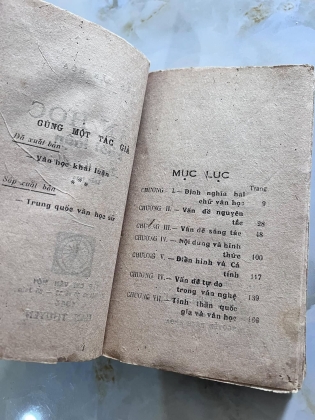 CÙNG MỘT TÁC GIẢ
Đã xuất bản
Văn học khái luận
Sắp xuất bản
— Trung quốc văn học sử
MỤC LỤC
Trang
CHƯƠNG I.— Định nghĩa hai
chữ văn học 9
CHƯƠNG II.— Vấn đề nguyên
tắc 28
CHƯƠNG III.— Vấn đề sáng tác 48
CHƯƠNG IV.— Nội dung và hình
thức 100
CHƯƠNG V.— Điển hình và Cá
tính 117
CHƯƠNG IV.— Vấn đề tự do
trong văn nghệ 139
CHƯƠNG VII.— Tinh thần quốc
gia và văn học 166